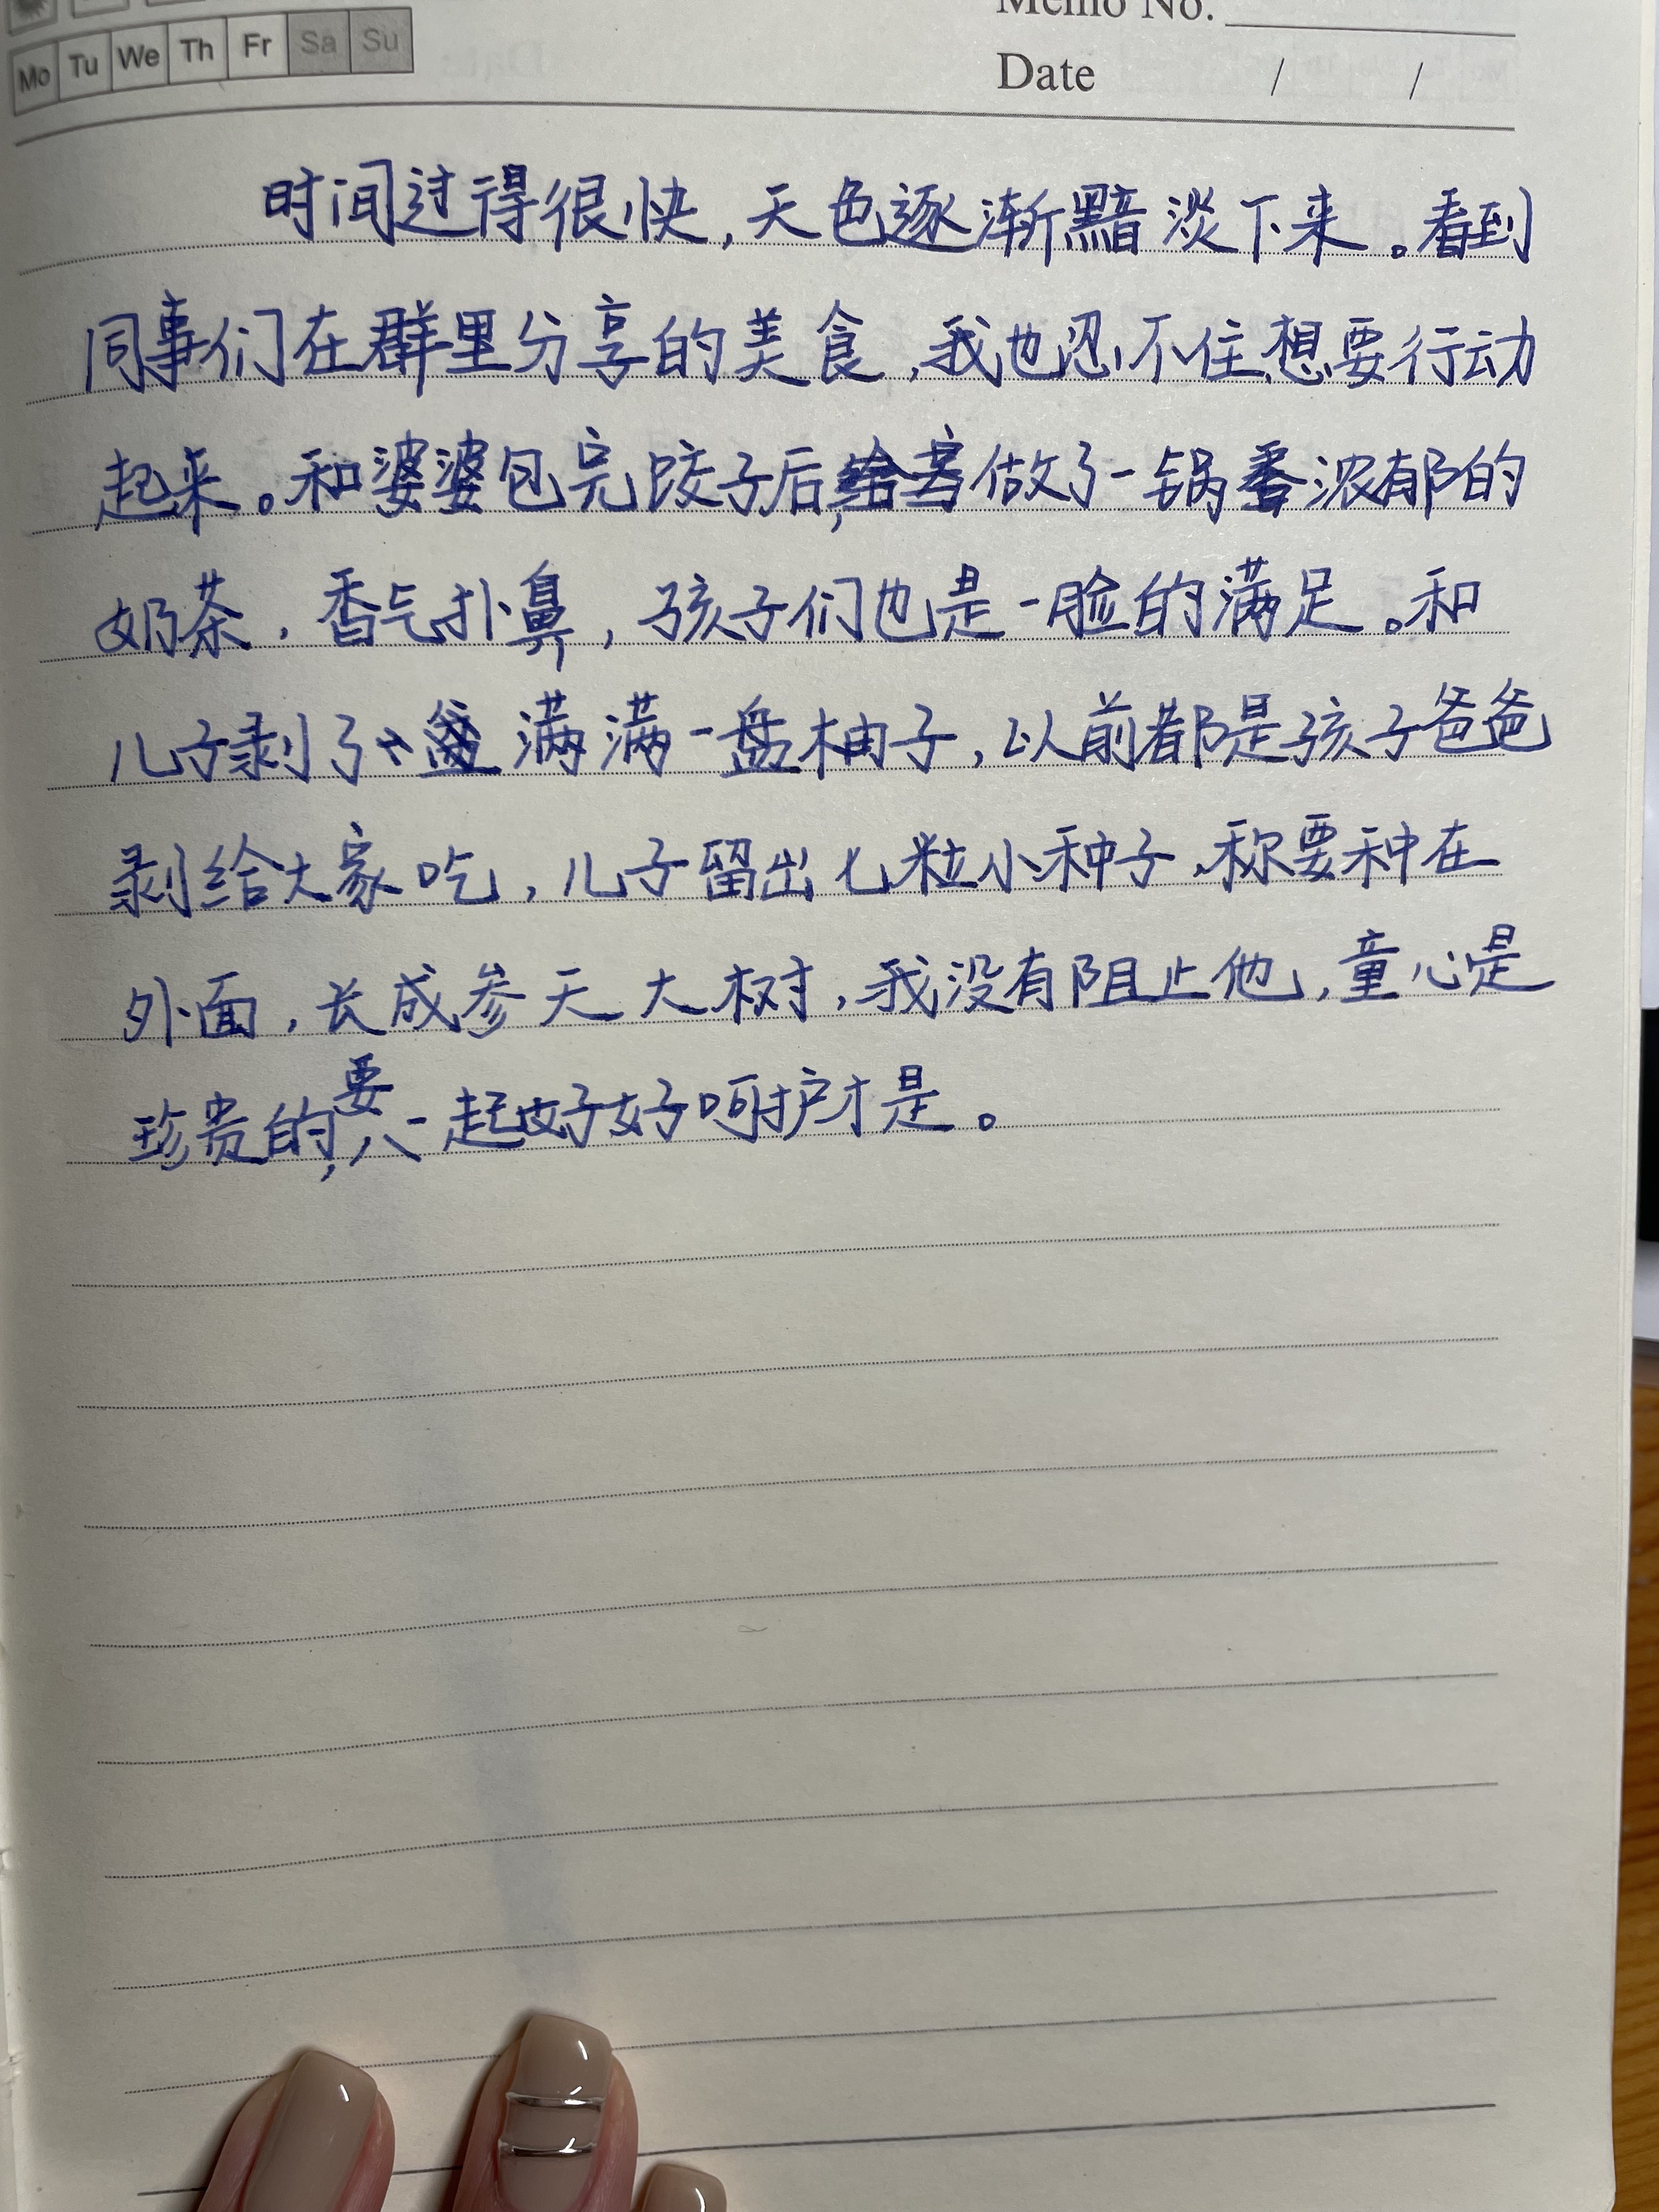 Memo No.
Mo Tu We Th Fr Sa Su
Date / /
时间过得很快,天色逐渐黯淡下来。看到
同事们在群里分享的美食,我也忍不住想要行动
起来。和婆婆包完饺子后,做了一锅浓郁的
奶茶,香气扑鼻,孩子们也是一脸的满足。和
儿子剥了满满一盘柚子,以前都是孩子爸爸
剥给大家吃,儿子留出七粒小种子,称要种在
外面,长成参天大树,我没有阻止他,童心是
珍贵的,要一起好好呵护才是。